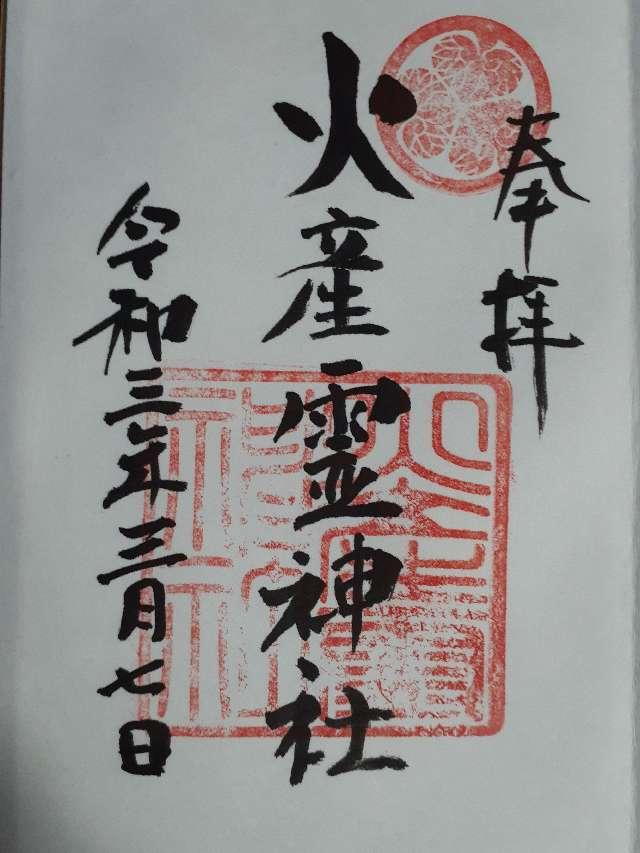 奉拝
火産霊神社
令和三年三月七日